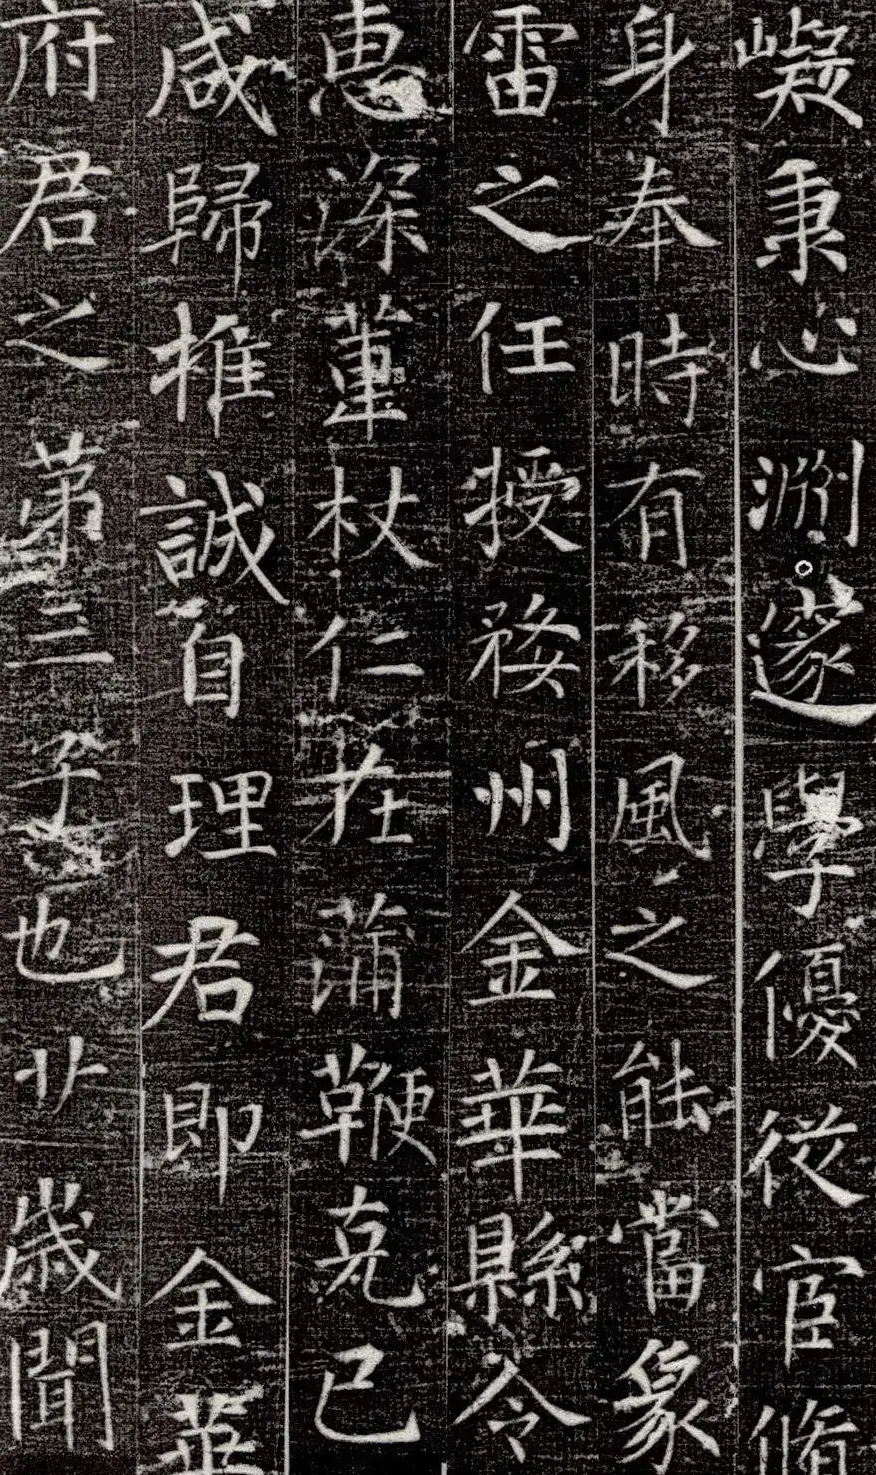 嶷秉心渊邃學優従宦脩
身奉時有移風之能當象
雷之任授婺州金華縣令
惠深薑杖仁在蒲鞭克己
咸歸推誠自理君即金華
府君之第三子也廿歲聞